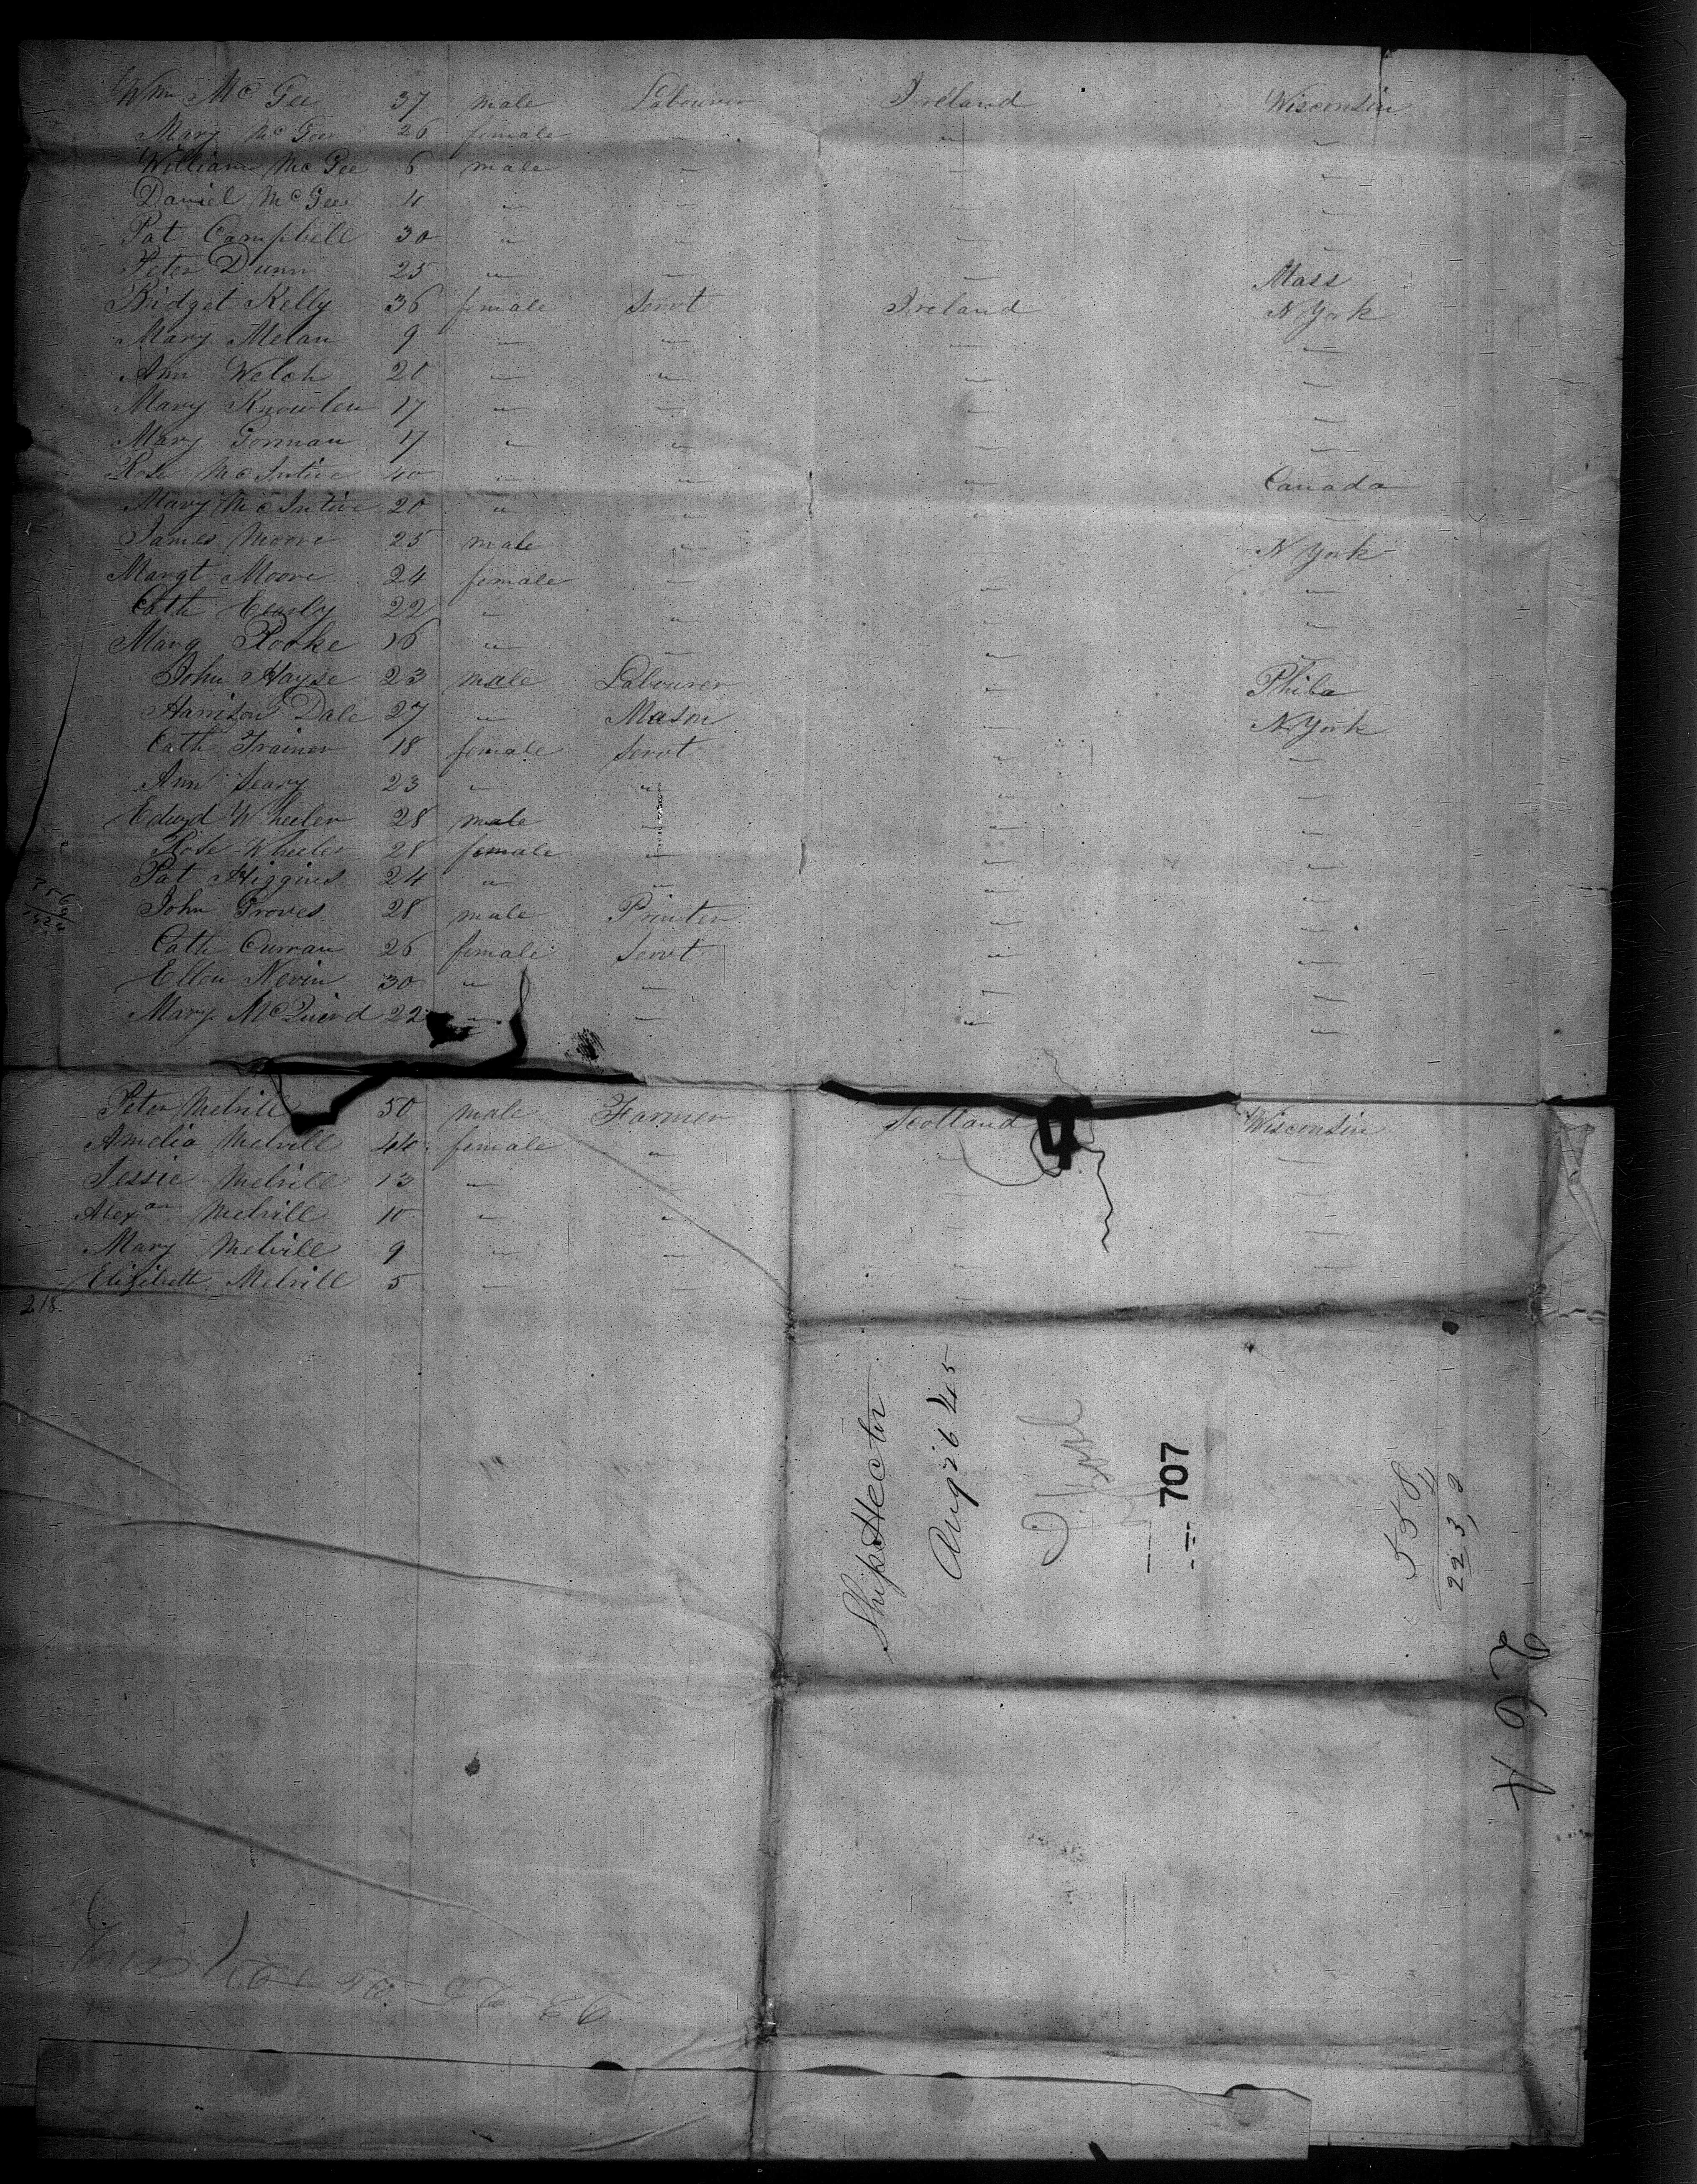 Wm McGee 37 male Labourer Ireland Wisconsin
Mary McGee 26 female " " "
William McGee 6 male " " "
Daniel McGee 4 " " " "
Pat Campbell 30 " " " "
Peter Dunn 25 " " " Mass
Bridget Kelly 36 female Servt Ireland N York
Mary Melan 9 " " " "
Ann Welch 20 " " " "
Mary Knowlen 17 " " " "
Mary Gorman 17 " " " "
Rose McIntire 40 " " " Canada
Mary McIntire 20 " " " "
James Moore 25 male " " N York
Margt Moore 24 female " " "
Cath 22 " " " "
Marg Rooke 16 " " " "
John Hayse 23 male Labourer " Phila
Harrison Dale 27 " Mason " N York
Cath Trainer 18 female Servt " "
Ann Seary 23 " " " "
Edwd Wheeler 28 male " " "
Rose Wheeler 28 female " " "
Pat Higgins 24 " " " "
John Groves 28 male Printer " "
Cath Curran 26 female Servt " "
Ellen Nevin 30 " " " "
Mary McQuird 22 " " " "
Peter Melvill 50 male Farmer Scotland Wisconsin
Amelia Melvill 44 female " " "
Jessie Melvill 13 " " " "
Alexar Melvill 10 " " " "
Mary Melvill 9 " " " "
Elizibeth Melvill 5 " " "
218
Ship Hector
Aug 26 45
707
558
4
223,2